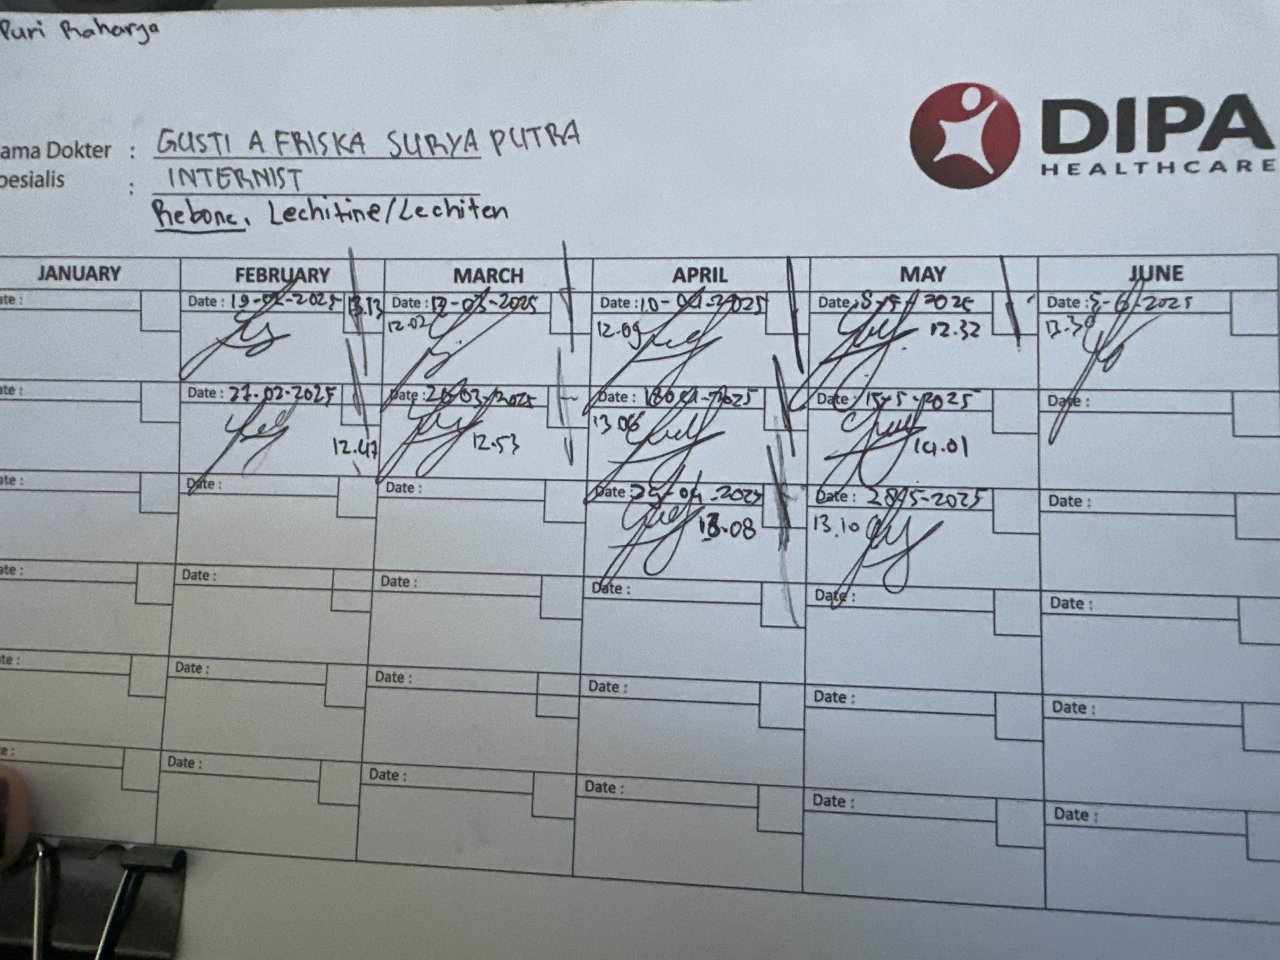 Puri Raharja
DIPA
HEALTHCARE
ama Dokter : GUSTI A FRISKA SURYA PUTRA
pesialis : INTERNIST
Rebone, Lechitine/Lechiten
JANUARY FEBRUARY MARCH APRIL MAY JUNE
ate: Date : 19-02-2025 13.13 Date : 12-03-2025 Date : 10-04-2025 Date : 8-5-2025 Date : 5-6-2025
12.02 12.09 12.32 13.30
ate: Date : 27-02-2025 Date : 2003-2025 Date : 1804-2025 Date : 15-5-2025 Date :
12.47 12.53 13.06 14.01
ate: Date : Date : Date : 04-2025 Date : 28/5-2025 Date :
13.08 13.10
ate: Date : Date : Date : Date : Date :
te: Date : Date : Date : Date : Date :
e: Date : Date : Date : Date : Date :